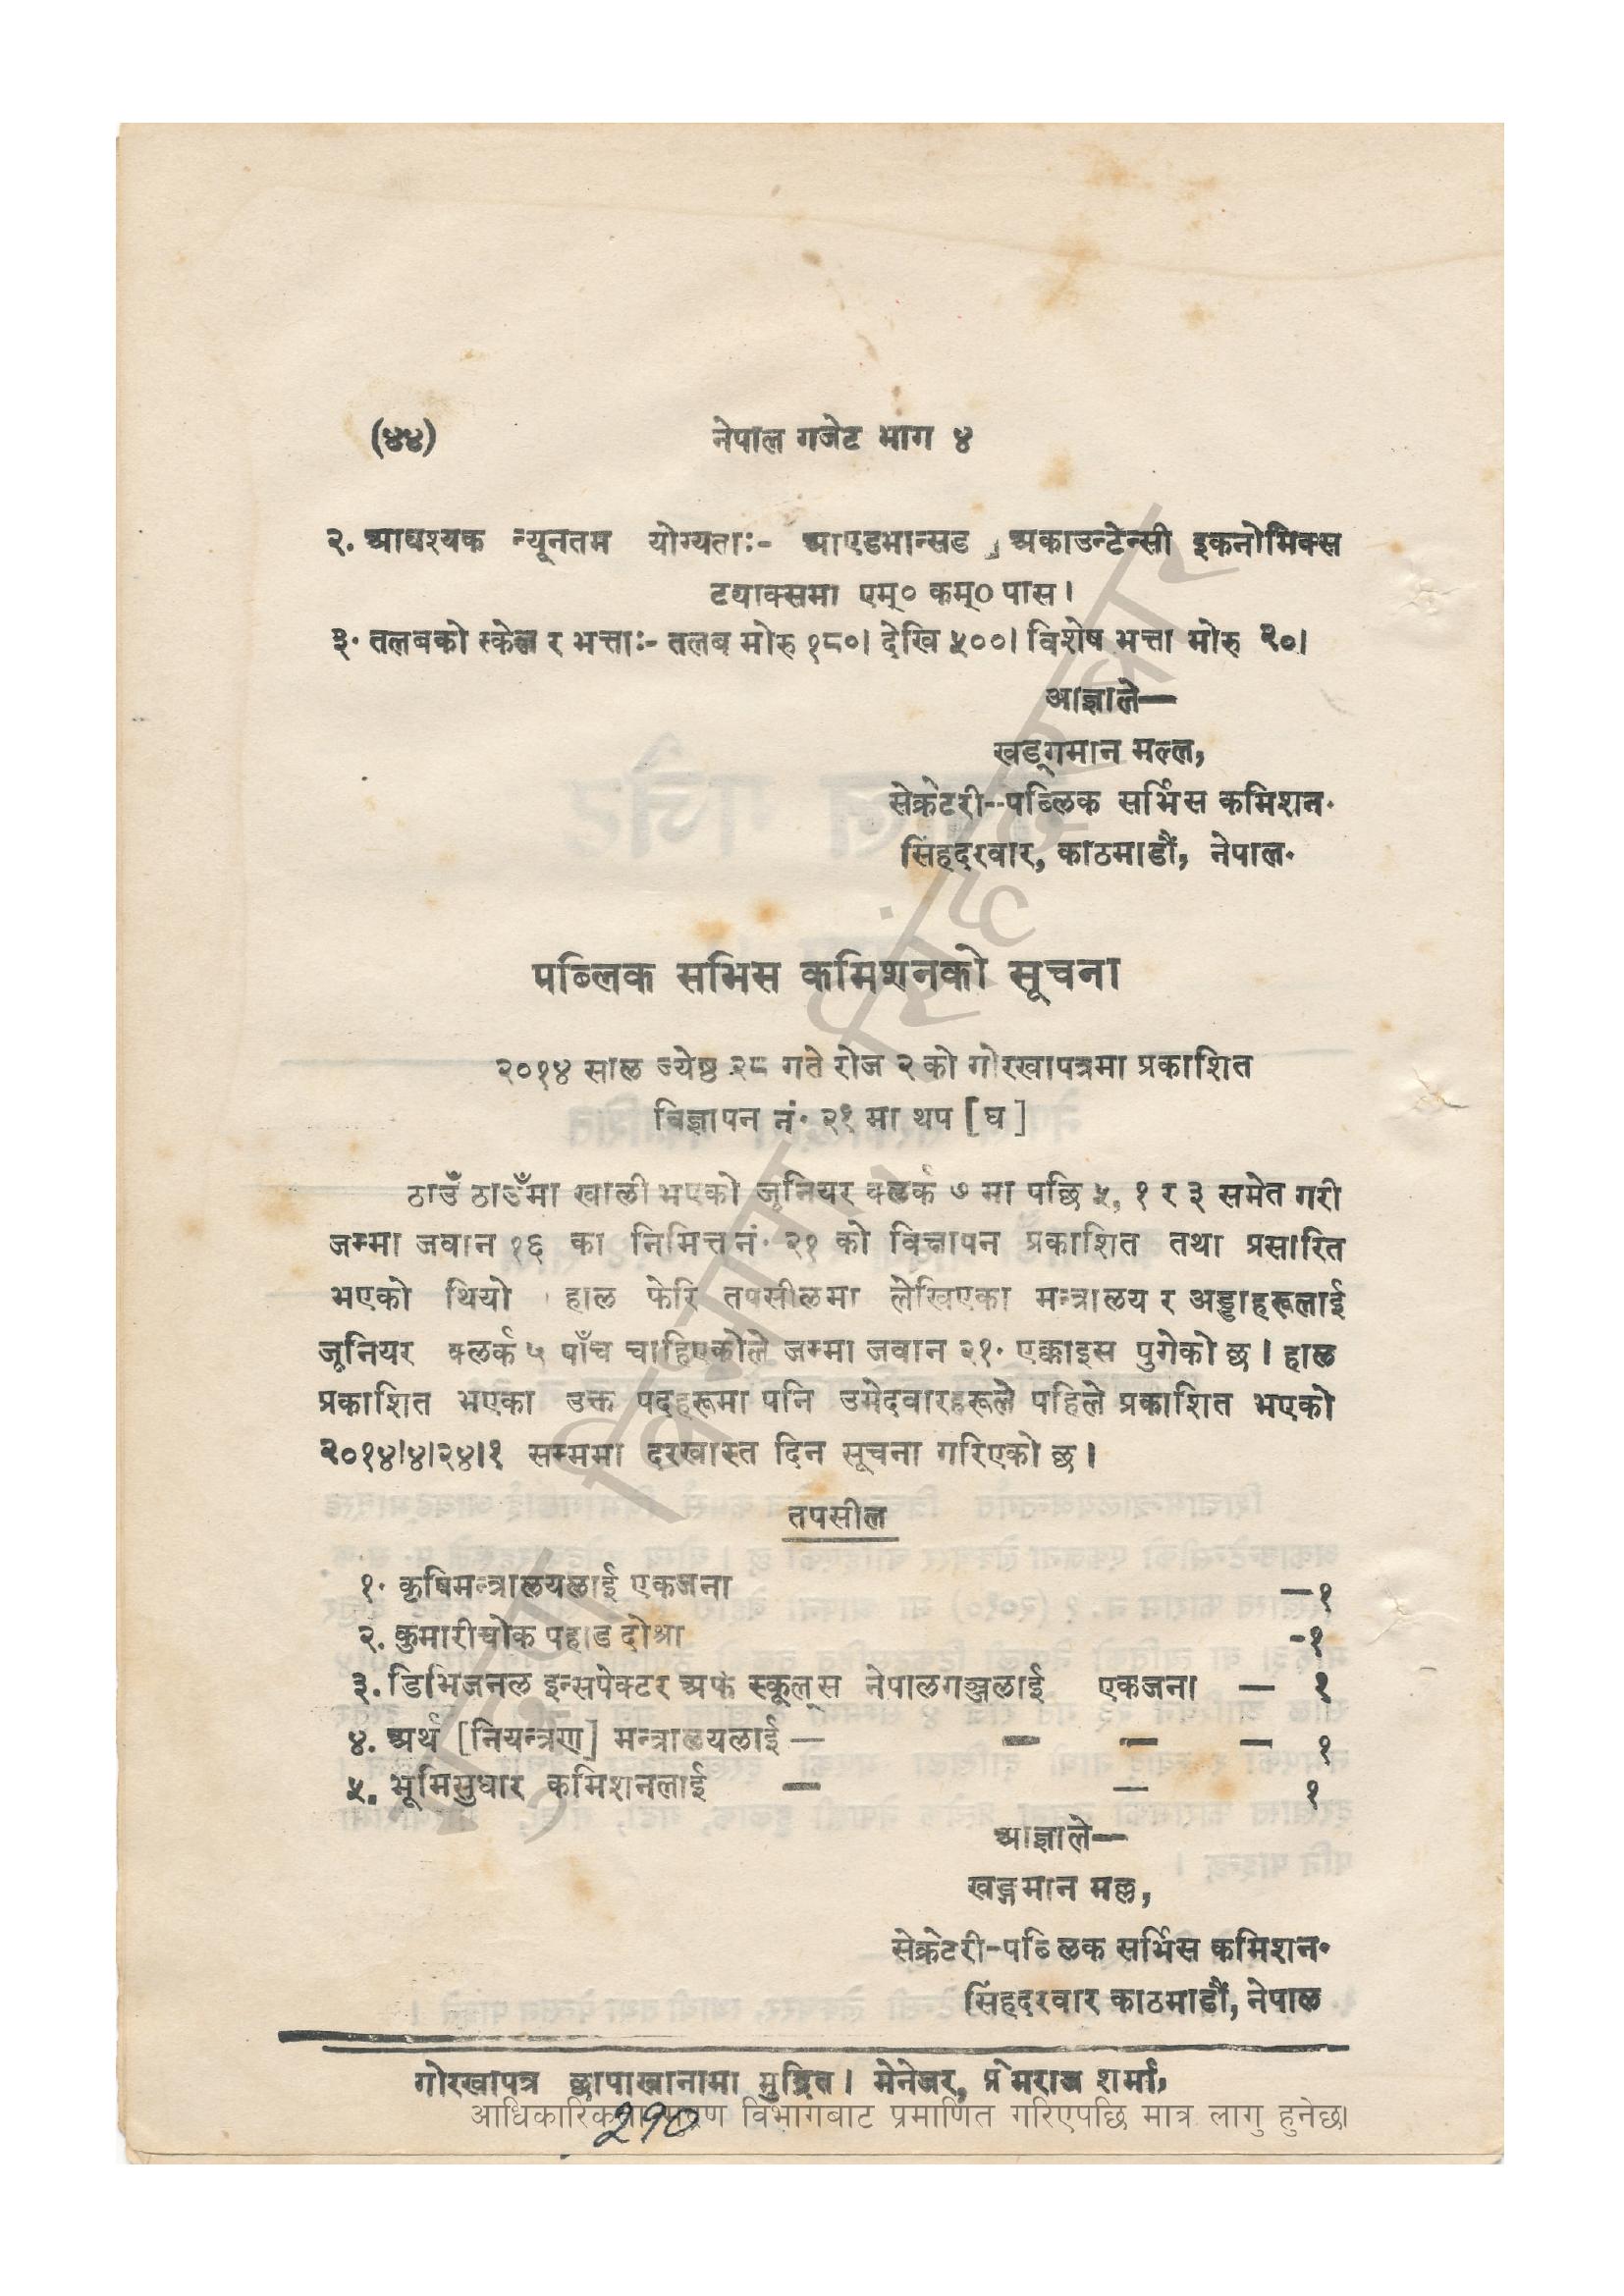 (४४) नेपाल गजेट भाग ४
२. आवश्यक न्यूनतम योग्यताः- आएडभान्सड , अकाउन्टेन्सी इकनोमिक्स
ट्याक्समा एम्० कम्० पास।
३· तलबको स्केल र भत्ताः- तलब मोरु १८०। देखि ५००। विशेष भत्ता मोरु २०।
आज्ञाले—
खड्गमान मल्ल,
सेक्रेटरी--पब्लिक सर्भिस कमिशन·
सिंहदरवार, काठमाडौं, नेपाल·
पब्लिक सभिस कमिशनको सूचना
२०१४ साल ज्येष्ठ २८ गते रोज २ को गोरखापत्रमा प्रकाशित
विज्ञापन नं· २१ मा थप [ घ ]
ठाउँ ठाउँमा खाली भएको जूनियर क्लर्क ७ मा पछि ५, १ र ३ समेत गरी
जम्मा जवान १६ का निमित्त नं· २१ को विज्ञापन प्रकाशित तथा प्रसारित
भएको थियो । हाल फेरि तपसीलमा लेखिएका मन्त्रालय र अड्डाहरूलाई
जूनियर क्लर्क ५ पाँच चाहिएकोले जम्मा जवान २१· एक्काइस पुगेको छ । हाल
प्रकाशित भएका उक्त पदहरूमा पनि उमेदवारहरूले पहिले प्रकाशित भएको
२०१४।४।२४।१ सम्ममा दरखास्त दिन सूचना गरिएको छ ।
तपसील
१· कृषिमन्त्रालयलाई एकजना —१
२. कुमारीचोक पहाड दोश्रा -१
३. डिभिजनल इन्सपेक्टर अफ स्कूल्स नेपालगञ्जलाई एकजना — १
४. अर्थ [नियन्त्रण] मन्त्रालयलाई — — — — १
५. भूमिसुधार कमिशनलाई — — १
आज्ञाले—
खड्गमान मल्ल,
सेक्रेटरी-पब्लिक सर्भिस कमिशन·
सिंहदरवार काठमाडौं, नेपाल
गोरखापत्र छापाखानामा मुद्रित । मेनेजर, प्रेमराज शर्मा,
आधिकारिकता मुद्रण विभागबाट प्रमाणित गरिएपछि मात्र लागु हुनेछ।
२१०
मुद्रण विभाग, सिंहदरबार